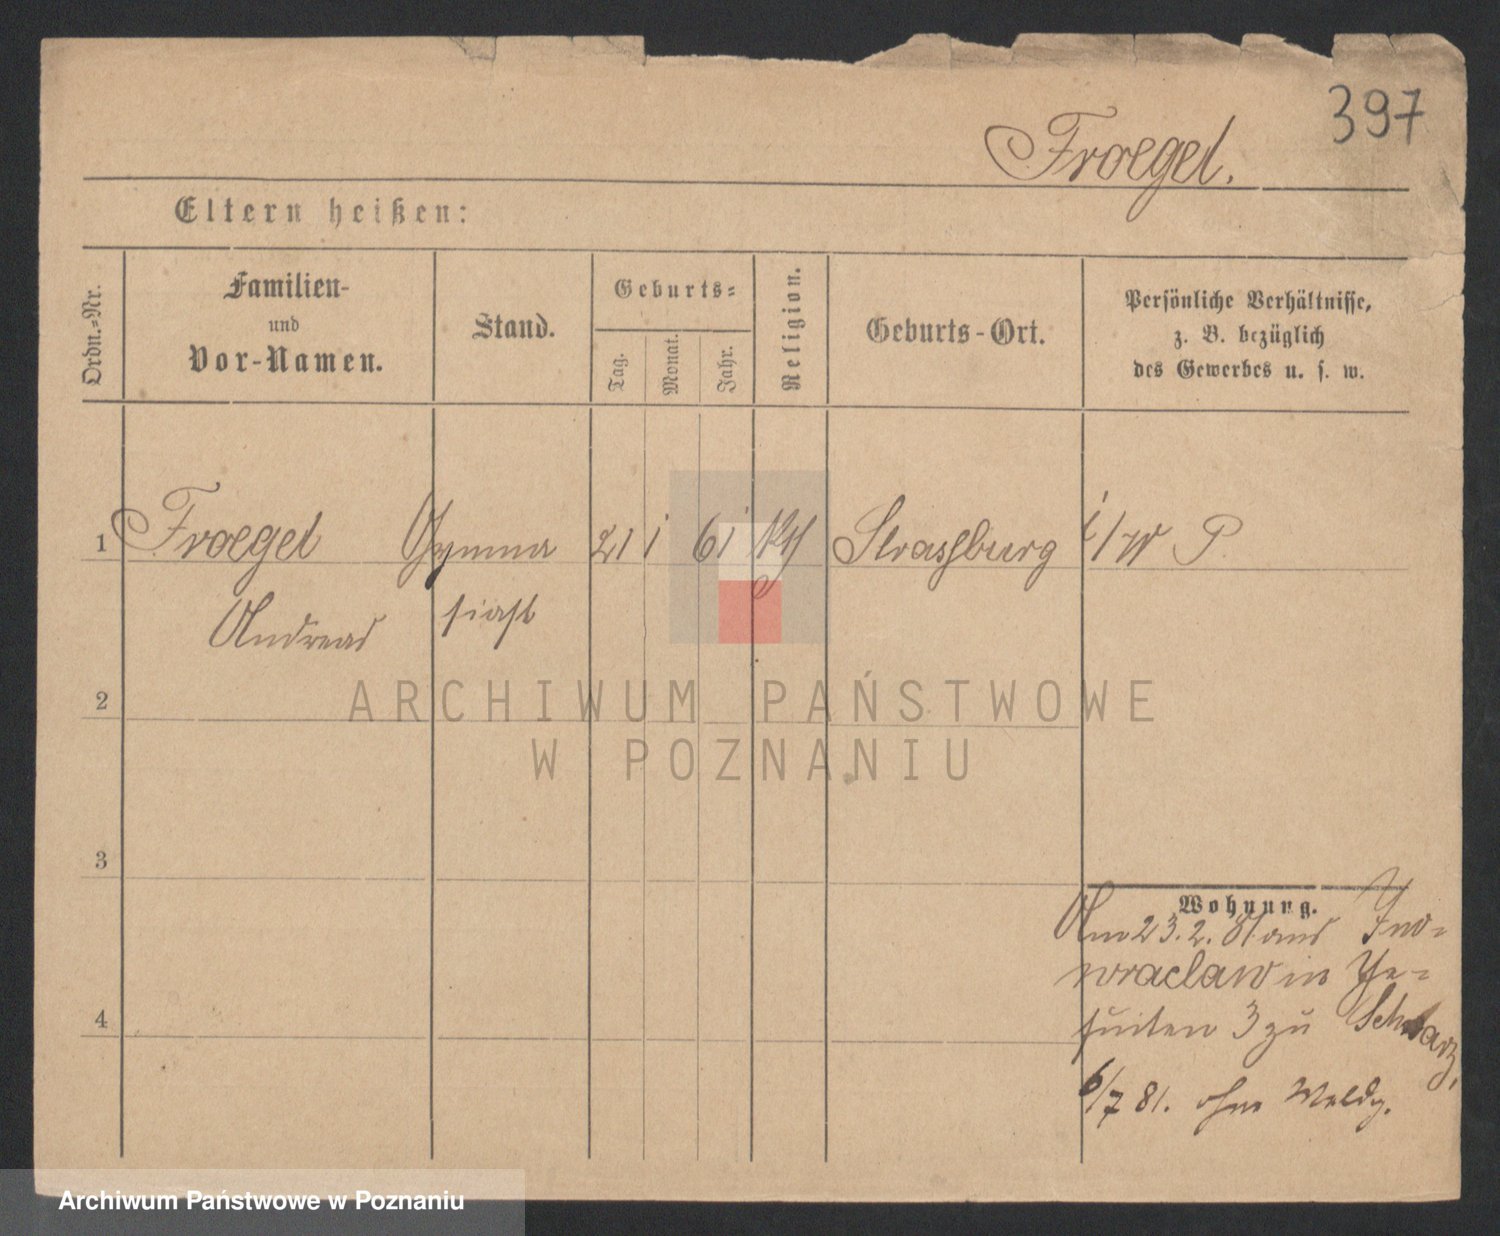 397
Froegel.
Eltern heißen:
Ordn.-Nr.
Familien-
und
Vor-Namen.
Stand.
Geburts-
Tag.
Monat.
Jahr.
Religion.
Geburts-Ort.
Persönliche Verhältnisse,
z. B. bezüglich
des Gewerbes u. s. w.
1 Froegel Gymna 21 1 61 Kth Strassburg i/W P.
Andreas siast
2
ARCHIWUM PAŃSTWOWE
W POZNANIU
3
Wohnung.
Am 23.2.81 aus Ino-
wraclaw in Je-
suiten 3 zu Schwarz,
4
6/7 81. ohne Meldg.
Archiwum Państwowe w Poznaniu